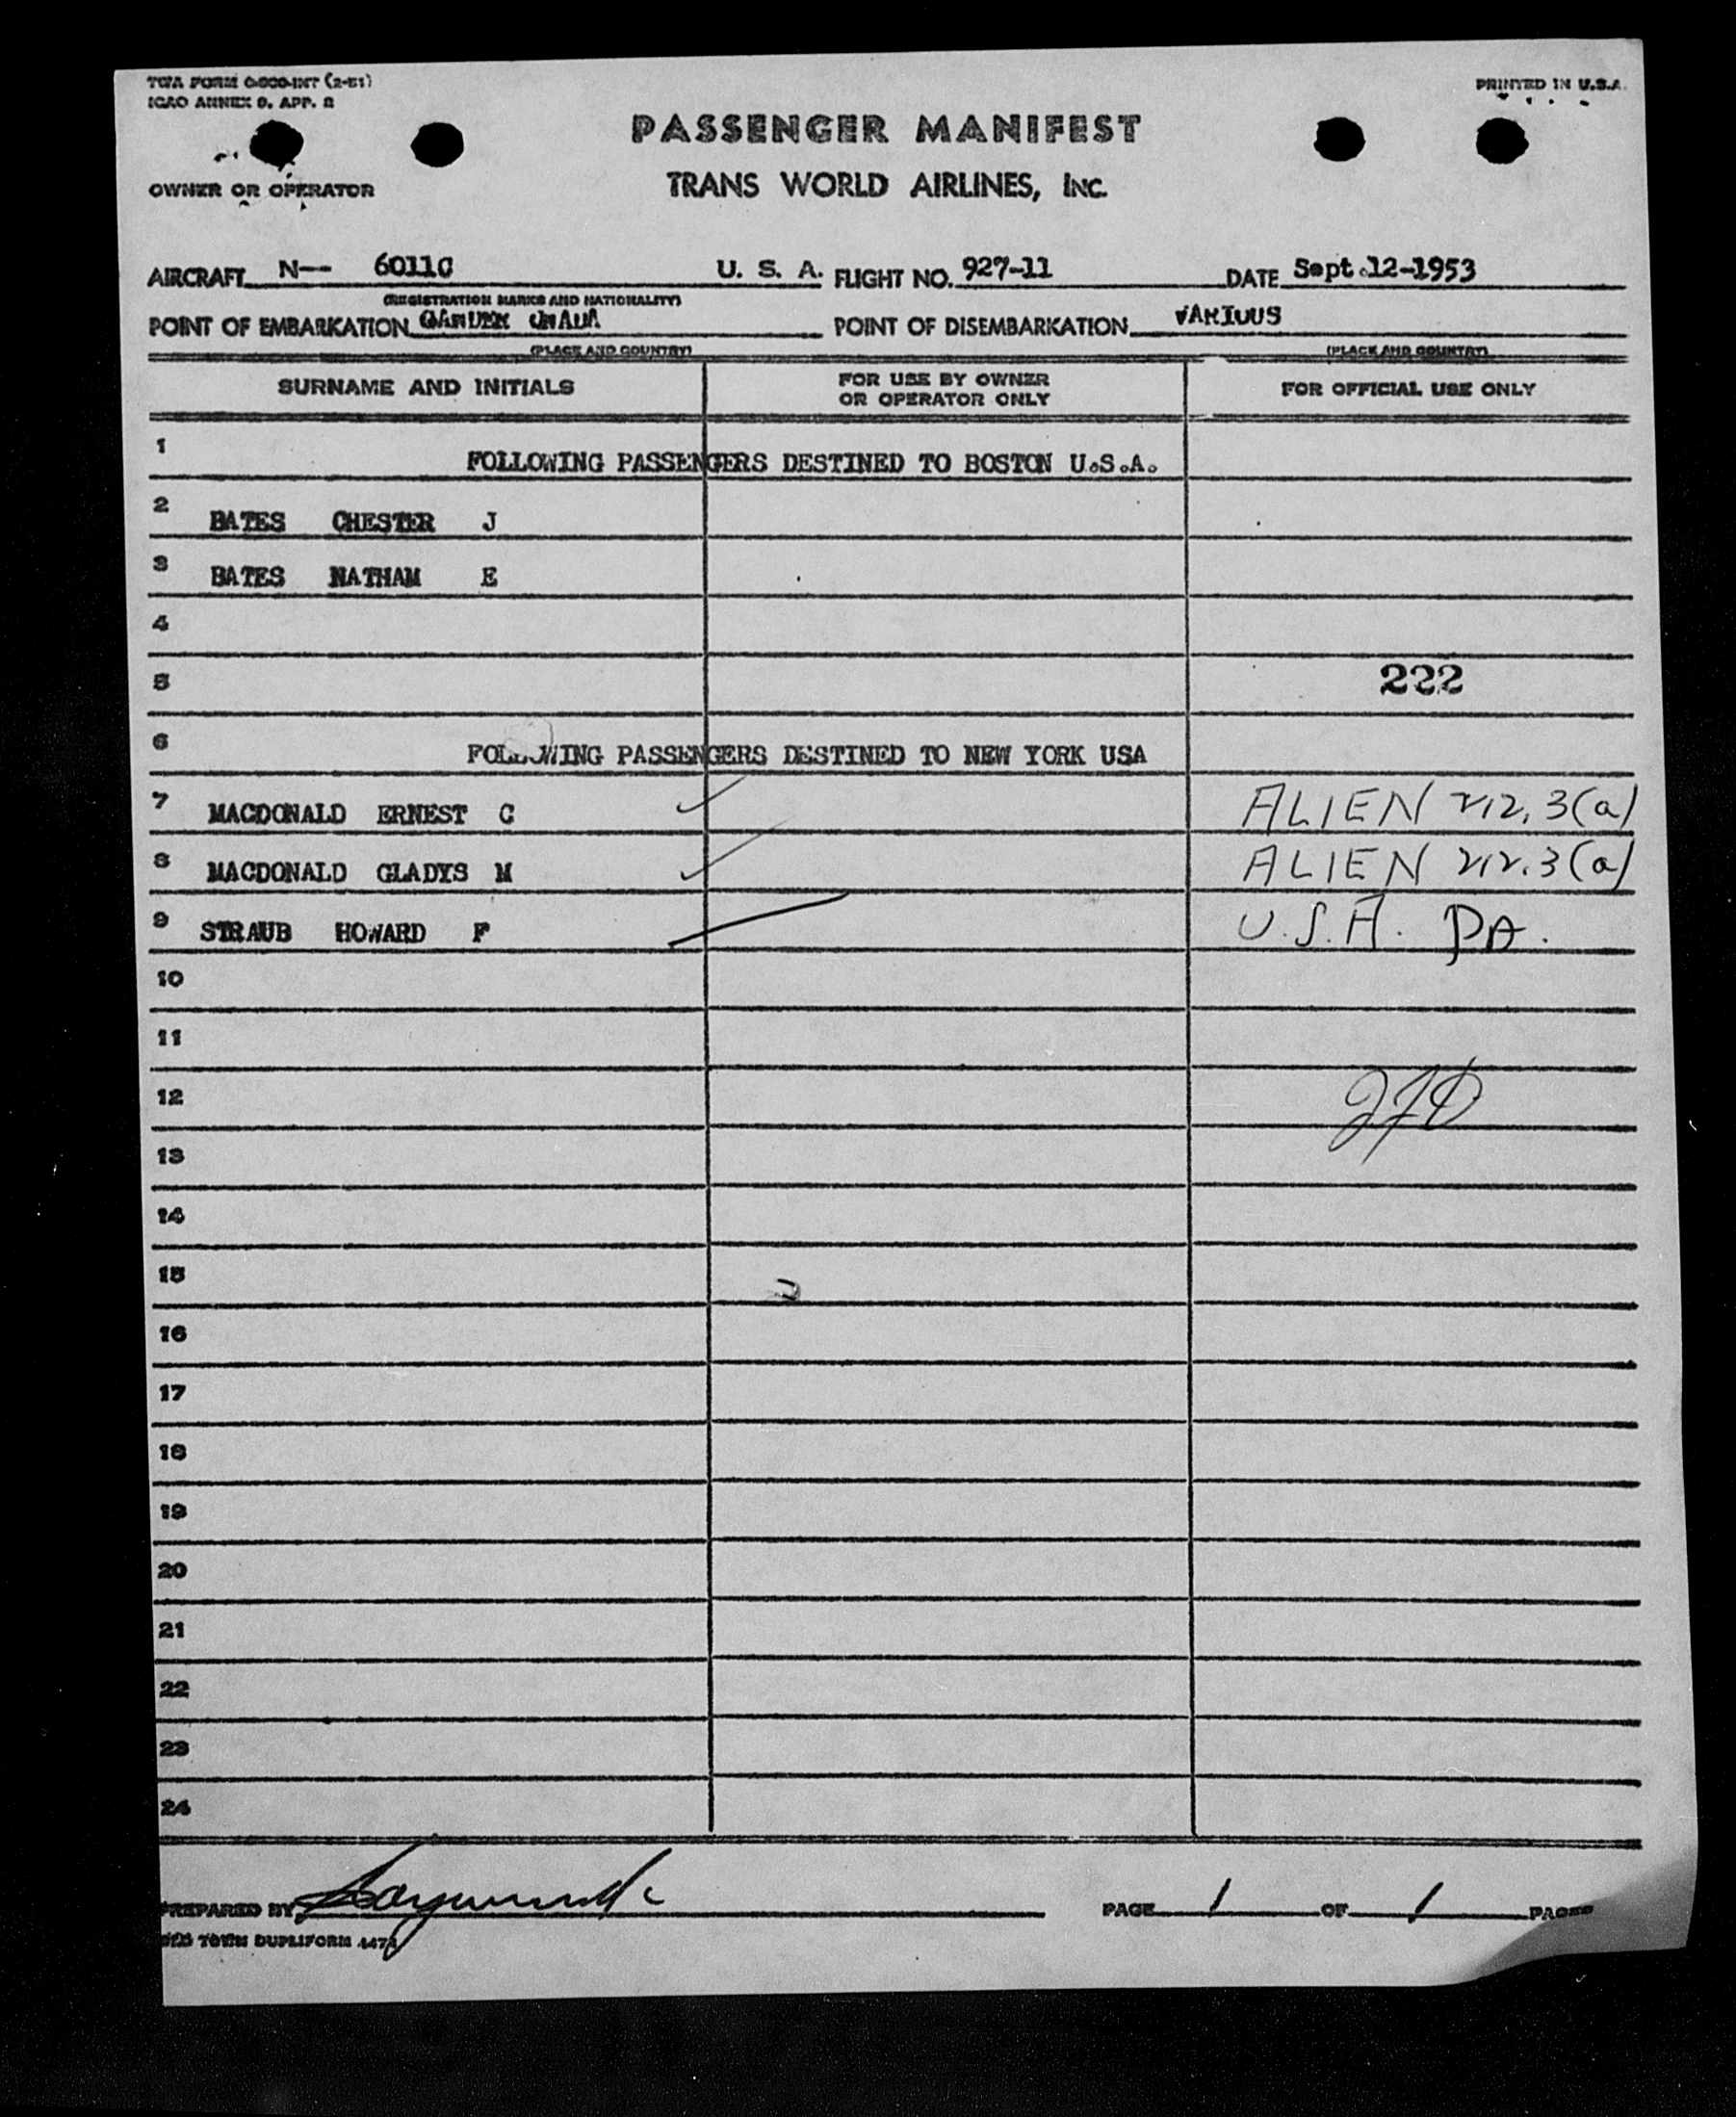 TWA FORM O-800-INT (2-51)
ICAO ANNEX 9, APP. 2
PRINTED IN U.S.A.
PASSENGER MANIFEST
TRANS WORLD AIRLINES, INC.
OWNER OR OPERATOR
AIRCRAFT N-- 6011C U. S. A. FLIGHT NO. 927-11 DATE Sept.12-1953
(REGISTRATION MARKS AND NATIONALITY)
POINT OF EMBARKATION POINT OF DISEMBARKATION VARIOUS
(PLACE AND COUNTRY) (PLACE AND COUNTRY)
SURNAME AND INITIALS FOR USE BY OWNER OR OPERATOR ONLY FOR OFFICIAL USE ONLY
1 FOLLOWING PASSENGERS DESTINED TO BOSTON U.S.A.
2 BATES CHESTER J
3 BATES NATHAM E
4
5 222
6 FOLLOWING PASSENGERS DESTINED TO NEW YORK USA
7 MACDONALD ERNEST C ALIEN 212.3(a)
8 MACDONALD GLADYS M ALIEN 212.3(a)
9 STRAUB HOWARD F U.S.A. PA.
10
11
12
13
14
15
16
17
18
19
20
21
22
23
24
PREPARED BY PAGE 1 OF 1 PAGES
DUPLIFORM